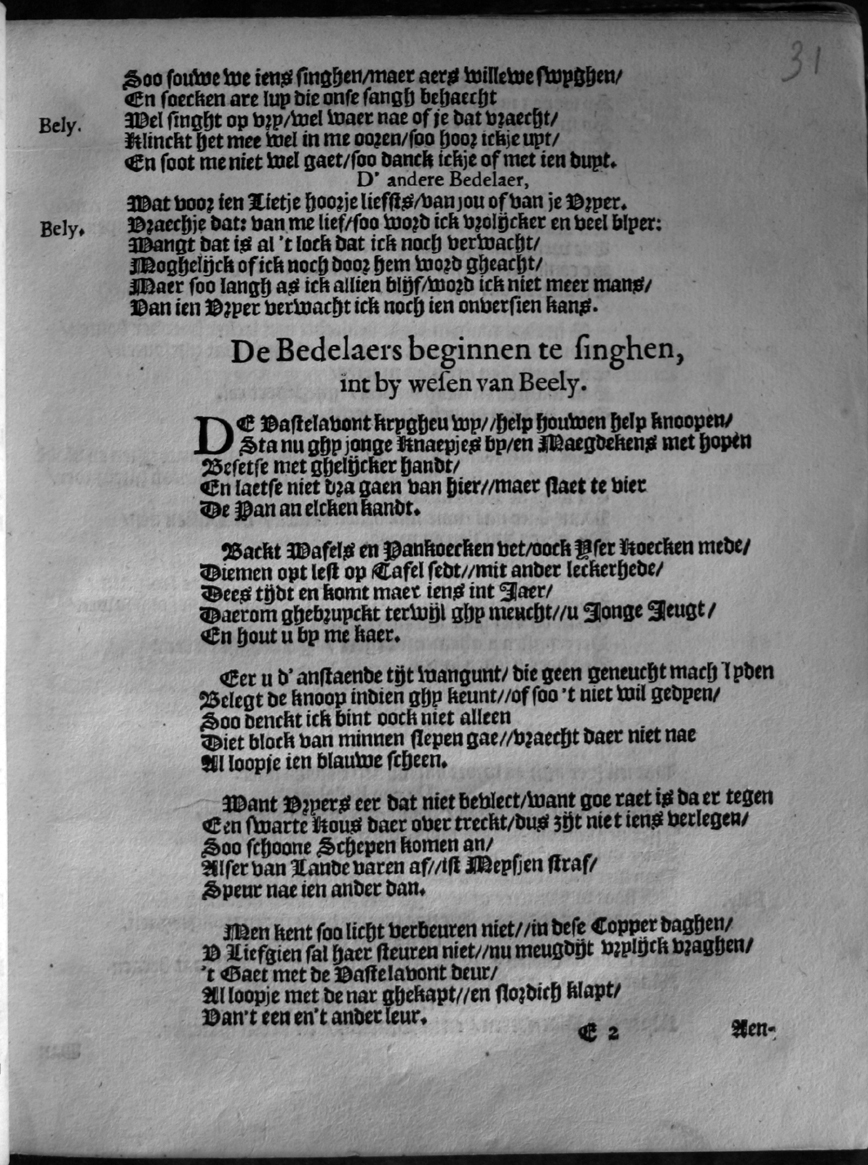 31
Soo souwe we iens singhen/maer aers willewe swyghen/
En soecken are luy die onse sangh behaecht
Bely. Wel singht op vry/wel waer nae of je dat vraecht/
Klinckt het mee wel in me ooren/soo hoor ickje uyt/
En soot me niet wel gaet/soo danck ickje of met ien duyt.
D' andere Bedelaer,
Wat voor ien Lietje hoorje liefsts/van jou of van je Vryer.
Bely. Vraechje dat: van me lief/soo word ick vrolijcker en veel blyer:
Wangt dat is al 't lock dat ick noch verwacht/
Moghelijck of ick noch door hem word gheacht/
Maer soo langh as ick allien blijf/word ick niet meer mans/
Van ien Vryer verwacht ick noch ien onversien kans.
De Bedelaers beginnen te singhen,
int by wesen van Beely.
DE Vastelavont krygheu wy//help houwen help knoopen/
Sta nu ghy jonge Knaepjes by/en Maegdekens met hopen
Besetse met ghelijcker handt/
En laetse niet dra gaen van hier//maer staet te vier
De Pan an elcken kandt.
Backt Wafels en Pankoecken vet/oock Yser Koecken mede/
Diemen opt lest op Tafel sedt//mit ander leckerhede/
Dees tijdt en komt maer iens int Jaer/
Daerom ghebruyckt terwijl ghy meucht//u Jonge Jeugt/
En hout u by me kaer.
Eer u d' anstaende tijt wangunt/ die geen geneucht mach lyden
Belegt de knoop indien ghy keunt//of soo 't niet wil gedyen/
Soo denckt ick bint oock niet alleen
Diet block van minnen slepen gae//vraecht daer niet nae
Al loopje ien blauwe scheen.
Want Vryers eer dat niet bevlect/want goe raet is da er tegen
Een swarte Kous daer over treckt/dus zijt niet iens verlegen/
Soo schoone Schepen komen an/
Alser van Lande varen af//ist Meysjen straf/
Speur nae ien ander dan.
Men kent soo licht verbeuren niet//in dese Copper daghen/
V Liefgien sal haer steuren niet//nu meugdijt vrylijck vraghen/
't Gaet met de Vastelavont deur/
Al loopje met de nar ghekapt//en slordich klapt/
Van't een en't ander leur.
E 2 Aen-